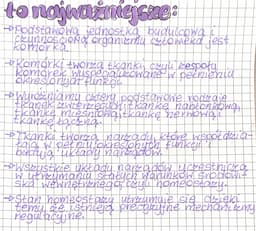 to najważniejsze:
→ Podstawową jednostką budulcową i
czynnościową organizmu człowieka jest
komórka.
→ Komórki tworzą tkanki, czyli zespoły
komórek wyspecjalizowane w pełnieniu
określonych funkcji.
→ Wyróżniamy cztery podstawowe rodzaje
tkanek zwierzęcych: tkankę nabłonkową,
tkankę mięśniową, tkankę nerwową i
tkankę łączną.
→ Tkanki tworzą narządy, które współdzia-
łają w pełnieniu określonych funkcji i
budują układy narządów.
→ Wszystkie układy narządów uczestniczą
w utrzymaniu stałych warunków środowi-
ska wewnętrznego, czyli homeostazy.
→ Stan homeostazy utrzymuje się dzięki
temu, że istnieją precyzyjne mechanizmy
regulacyjne.